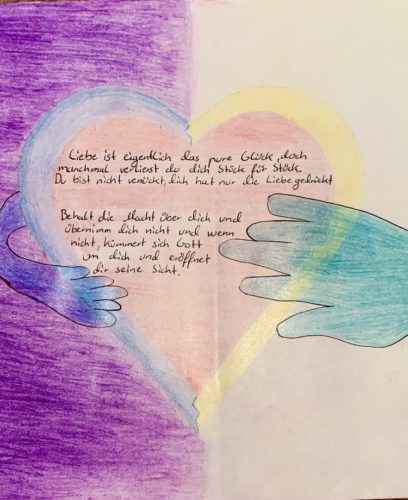 Liebe ist eigentlich das pure Glück, doch
manchmal verlierst du dich Stück für Stück.
Du bist nicht verrückt, dich hat nur die Liebe gedrückt
Behalt die Macht über dich und
übernimm dich nicht und wenn
nicht, kümmert sich Gott
um dich und eröffnet
dir seine Sicht.